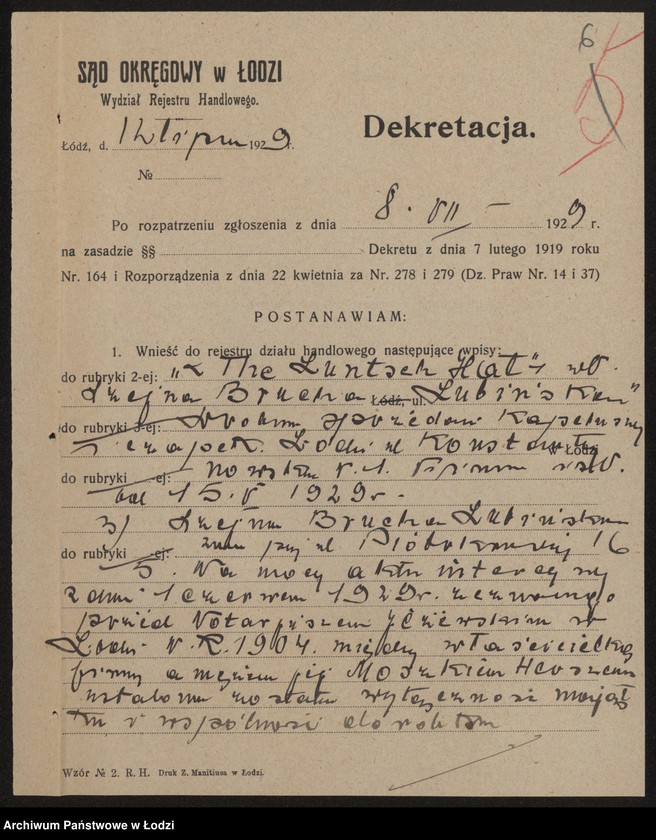 6
SĄD OKRĘGOWY w ŁODZI
Wydział Rejestru Handlowego.
Dekretacja.
Łódź, d. 12 lipca 1929 r.
№
8. VII – 1929 r.
Po rozpatrzeniu zgłoszenia z dnia
na zasadzie §§ Dekretu z dnia 7 lutego 1919 roku
Nr. 164 i Rozporządzenia z dnia 22 kwietnia za Nr. 278 i 279 (Dz. Praw Nr. 14 i 37)
POSTANAWIAM:
1. Wnieść do rejestru działu handlowego następujące wpisy:
do rubryki 2-ej: „The Luntsch Hat" wł.
Łajna Brucha Lubińska"
Łódź, ul.
do rubryki 3-ej: Drobna sprzedaż kapeluszy
i czapek. Łódź ul Konstanty
w Łodzi
do rubryki ej: nowska № 1. Firma istn.
od 15. V 1929 r.
3) Łajna Brucha Lubińska
do rubryki ej: zam przy ul Piotrkowskiej 16
5. Na mocy aktu intercyzy
z dnia 1 czerwca 1929 r. zeznanego
przed Notarjuszem w
Łodzi № R. 1904. między właścicielką
firmy a mężem jej Moszkiem Herszem
ustalona została wyłączność mająt
ku i wspólność dorobku
Wzór № 2. R. H. Druk Z. Manitiusa w Łodzi.
Archiwum Państwowe w Łodzi